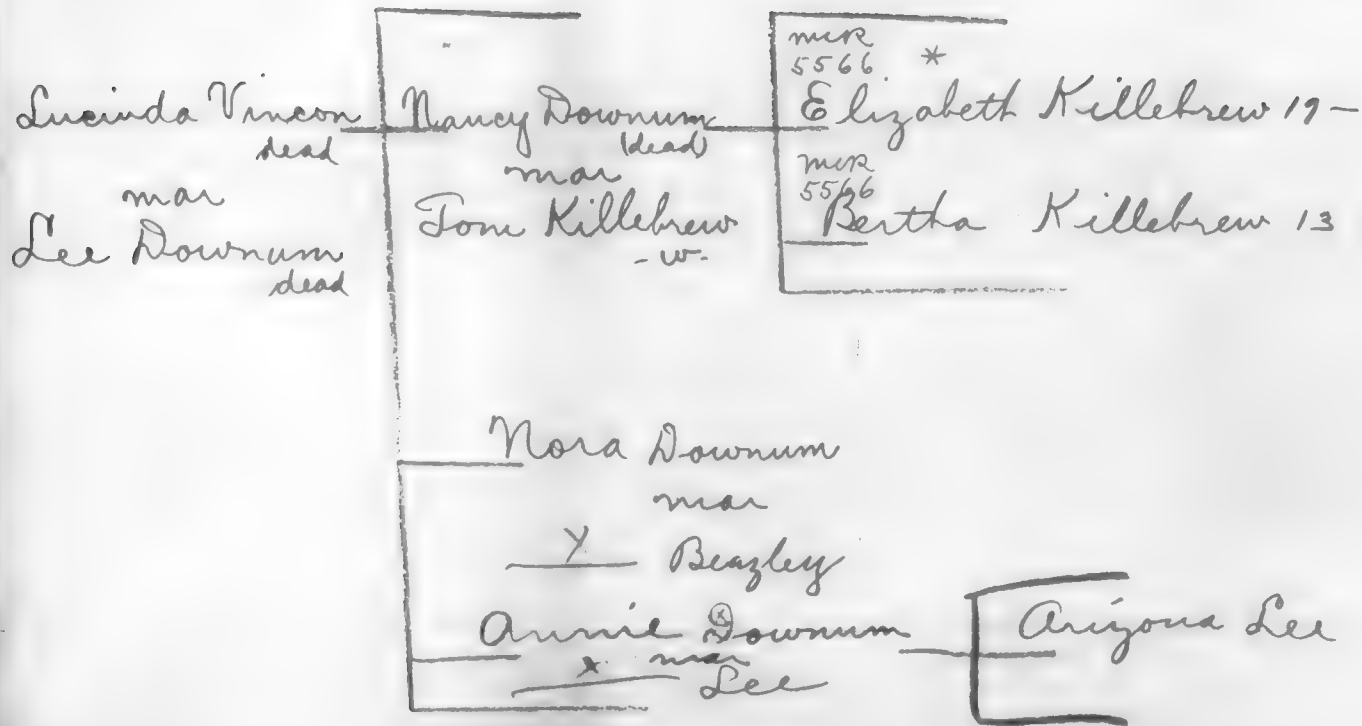 Lucinda Vincon
dead
mar
Lee Downum
dead
Nancy Downum
(dead)
mar
Tom Killebrew
- w -
MCR
5566 *
Elizabeth Killebrew 19 -
MCR
5566
Bertha Killebrew 13
Nora Downum
mar
Y Beazley
Annie Downum
x mar
Lee
Arizona Lee